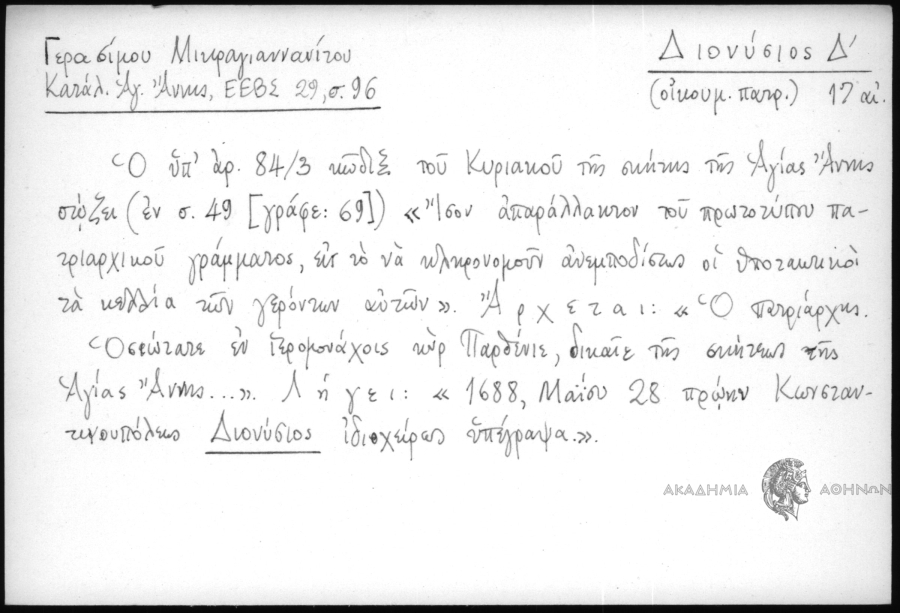 Γερασίμου Μικραγιαννανίτου
Κατάλ. Ἁγ. Ἄννης, ΕΕΒΣ 29, σ. 96
Διονύσιος Δ′
(οἰκουμ. πατρ.) 17 αἰ.
Ὁ ὑπ' ἀρ. 84/3 κῶδιξ τοῦ Κυριακοῦ τῆς σκήτης τῆς Ἁγίας Ἄννης
σῴζει (ἐν σ. 49 [γράφε: 69]) «Ἴσον ἀπαράλλακτον τοῦ πρωτοτύπου πα-
τριαρχικοῦ γράμματος, εἰς τὸ νὰ κληρονομοῦν ἀνεμποδίστως οἱ ὑποτακτικοὶ
τὰ κελλία τῶν γερόντων αὐτῶν». Ἄρχεται: «Ὁ πατριάρχης.
Ὁσιώτατε ἐν ἱερομονάχοις κὺρ Παρθένιε, δικαῖε τῆς σκήτεως τῆς
Ἁγίας Ἄννης...». Λήγει: «1688, Μαΐου 28 πρῴην Κωνσταν-
τινουπόλεως Διονύσιος ἰδιοχείρως ὑπέγραψα.».
ΑΚΑΔΗΜΙΑ ΑΘΗΝΩΝ